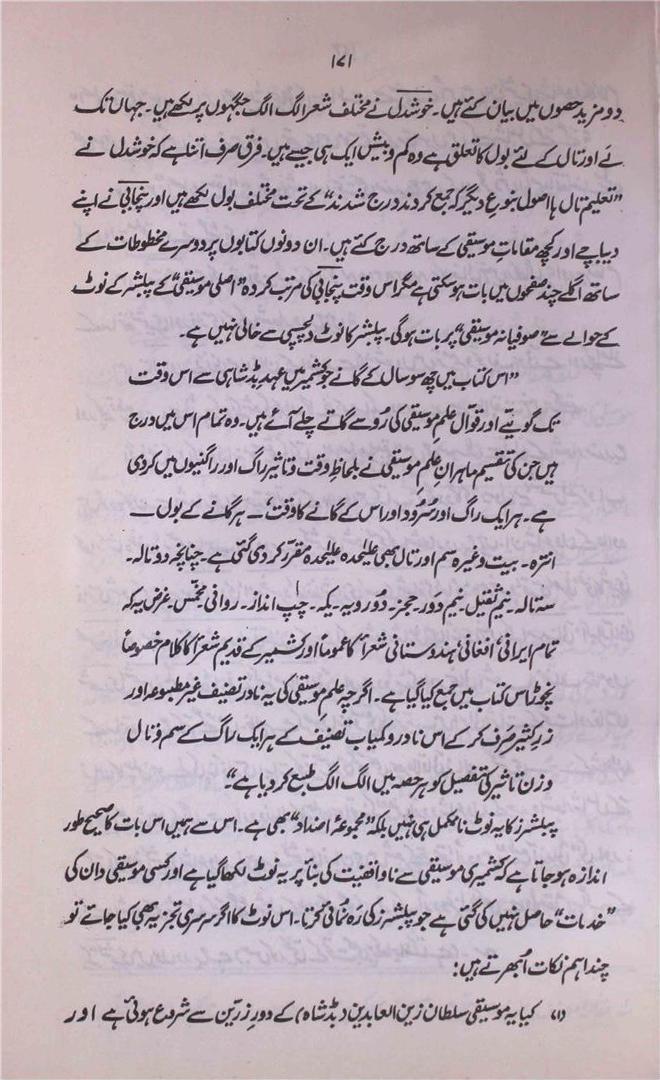 ۱۷۱
دو مزید حصوں میں بیان کئے ہیں۔ خوشدل نے مختلف شعر الگ الگ جگہوں پر لکھے ہیں۔ جہاں تک
لَے اور تال کے لئے بول کا تعلق ہے وہ کم و بیش ایک ہی جیسے ہیں۔ فرق صرف اتنا ہے کہ خوشدل نے
”تعلیم تال با اصول بنوع دیگر کہ جمع کردند درج شدند“ کے تحت مختلف بول لکھے ہیں اور پنجابی نے اپنے
دیباچے اور کچھ مقاماتِ موسیقی کے ساتھ درج کئے ہیں۔ ان دونوں کتابوں پر دوسرے مخطوطات کے
ساتھ اگلے چند صفحوں میں بات ہو سکتی ہے مگر اس وقت پنجابی کی مرتب کردہ ”اصلی موسیقی“ کے پبلشر کے نوٹ
کے حوالے سے ”صوفیانہ موسیقی“ پر بات ہو گی۔ پبلشر کا نوٹ دلچسپی سے خالی نہیں ہے۔
”اس کتاب میں چھ سو سال کے گانے جو کشمیر میں عہدِ بڈشاہی سے اس وقت
تک گویّے اور قوّال علمِ موسیقی کی رُو سے گاتے چلے آئے ہیں۔ وہ تمام اس میں درج
ہیں جن کی تقسیم ماہرانِ علمِ موسیقی نے بلحاظِ وقت و تاثیر راگ اور راگنیوں میں کر دی
ہے۔ ہر ایک راگ اور سُرود اور اس کے گانے کا وقت‘ ـ ہر گانے کے بول ـ
انترہ۔ بیت وغیرہ سم اور تال بھی علیٰحدہ علیٰحدہ مقرّر کر دی گئی ہے۔ چنانچہ دو تالہ۔
سہ تالہ۔ نیم ثقیل۔ نیم دَور۔ حجز۔ دُو رویہ۔ یکہ۔ چپ انداز۔ روانی مخمّس۔ غرض یہ کہ
تمام ایرانی‘ افغانی‘ ہندوستانی شعرأ کا عموماً اور کشمیر کے قدیم شعرأ کا کلام خصوصاً
نچوڑ اس کتاب میں جمع کیا گیا ہے۔ اگرچہ علم موسیقی کی یہ نادر تصنیف غیر مطبوعہ اور
زرِ کثیر صَرف کر کے اس نادر و کمیاب تصنیف کے ہر ایک راگ کے سم و تال
وزن تاثیر کی تفصیل کو ہر حصہ میں الگ الگ طبع کر دیا ہے“۔
پبلشرز کا یہ نوٹ نامکمل ہی نہیں بلکہ ”مجموعۂ اضداد“ بھی ہے۔ اس سے ہمیں اس بات کا صحیح طور
اندازہ ہو جاتا ہے کہ کشمیری موسیقی سے ناواقفیت کی بنأ پر یہ نوٹ لکھا گیا ہے اور کسی موسیقی دان کی
”خدمات“ حاصل نہیں کی گئی ہے جو پبلشرز کی رَہ نُمائی کرتا۔ اس نوٹ کا اگر سرسری تجزیہ بھی کیا جائے تو
چند اہم نکات اُبھرتے ہیں:
(۱) کیا یہ موسیقی سلطان زین العابدین (بڈ شاہ) کے دورِ زرّین سے شروع ہوئی ہے اور